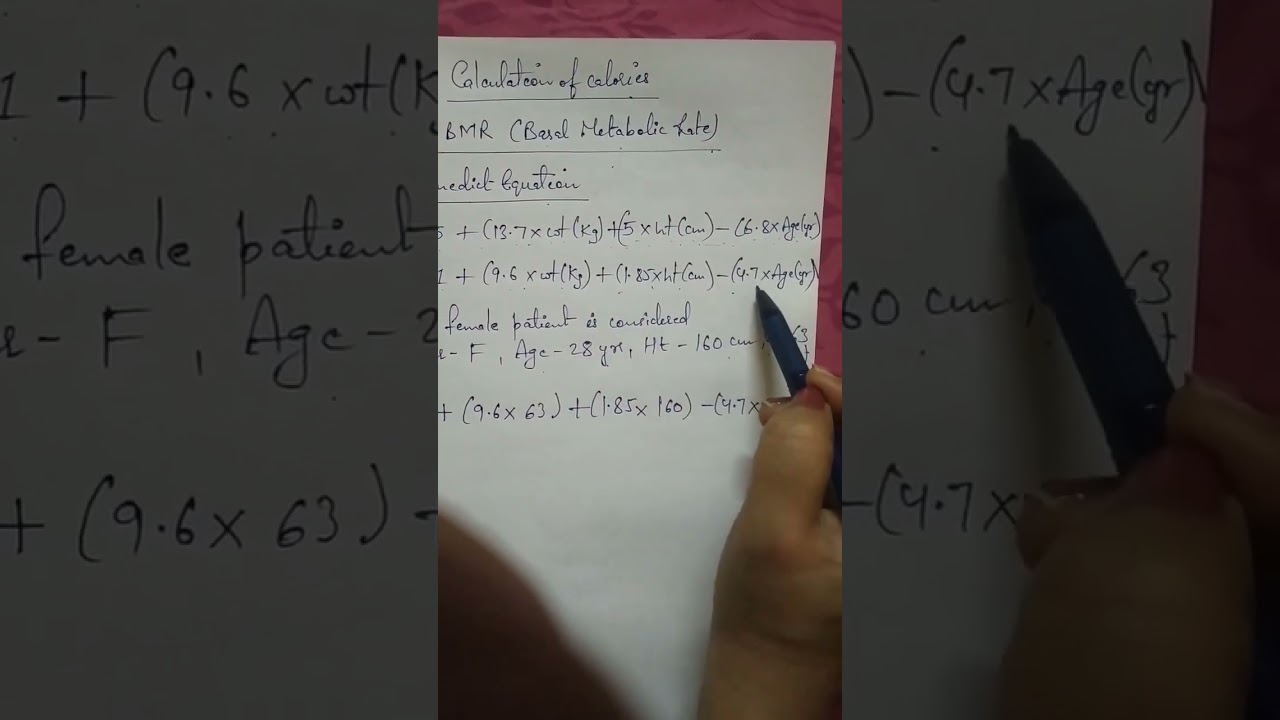 Calculation of calories
BMR (Basal Metabolic Rate)
nedict Equation
5 + (13.7 x wt (Kg) + (5 x ht (cm) - (6.8 x Age (yr)
1 + (9.6 x wt (Kg) + (1.85 x ht (cm) - (4.7 x Age (yr)
female patient is considered
- F , Age - 28 yrs, Ht - 160 cm, 63
+ (9.6 x 63) + (1.85 x 160) - (4.7 x